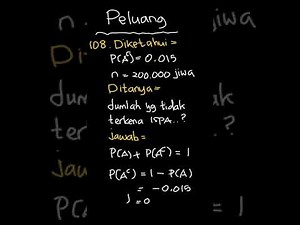 Peluang
108. Diketahui =
P(A) = 0.015
n = 200.000 jiwa
Ditanya =
Jumlah yg tidak
terkena ISPA..?
Jawab =
P(A) + P(Aᶜ) = 1
P(Aᶜ) = 1 - P(A)
= -0.015
= 0